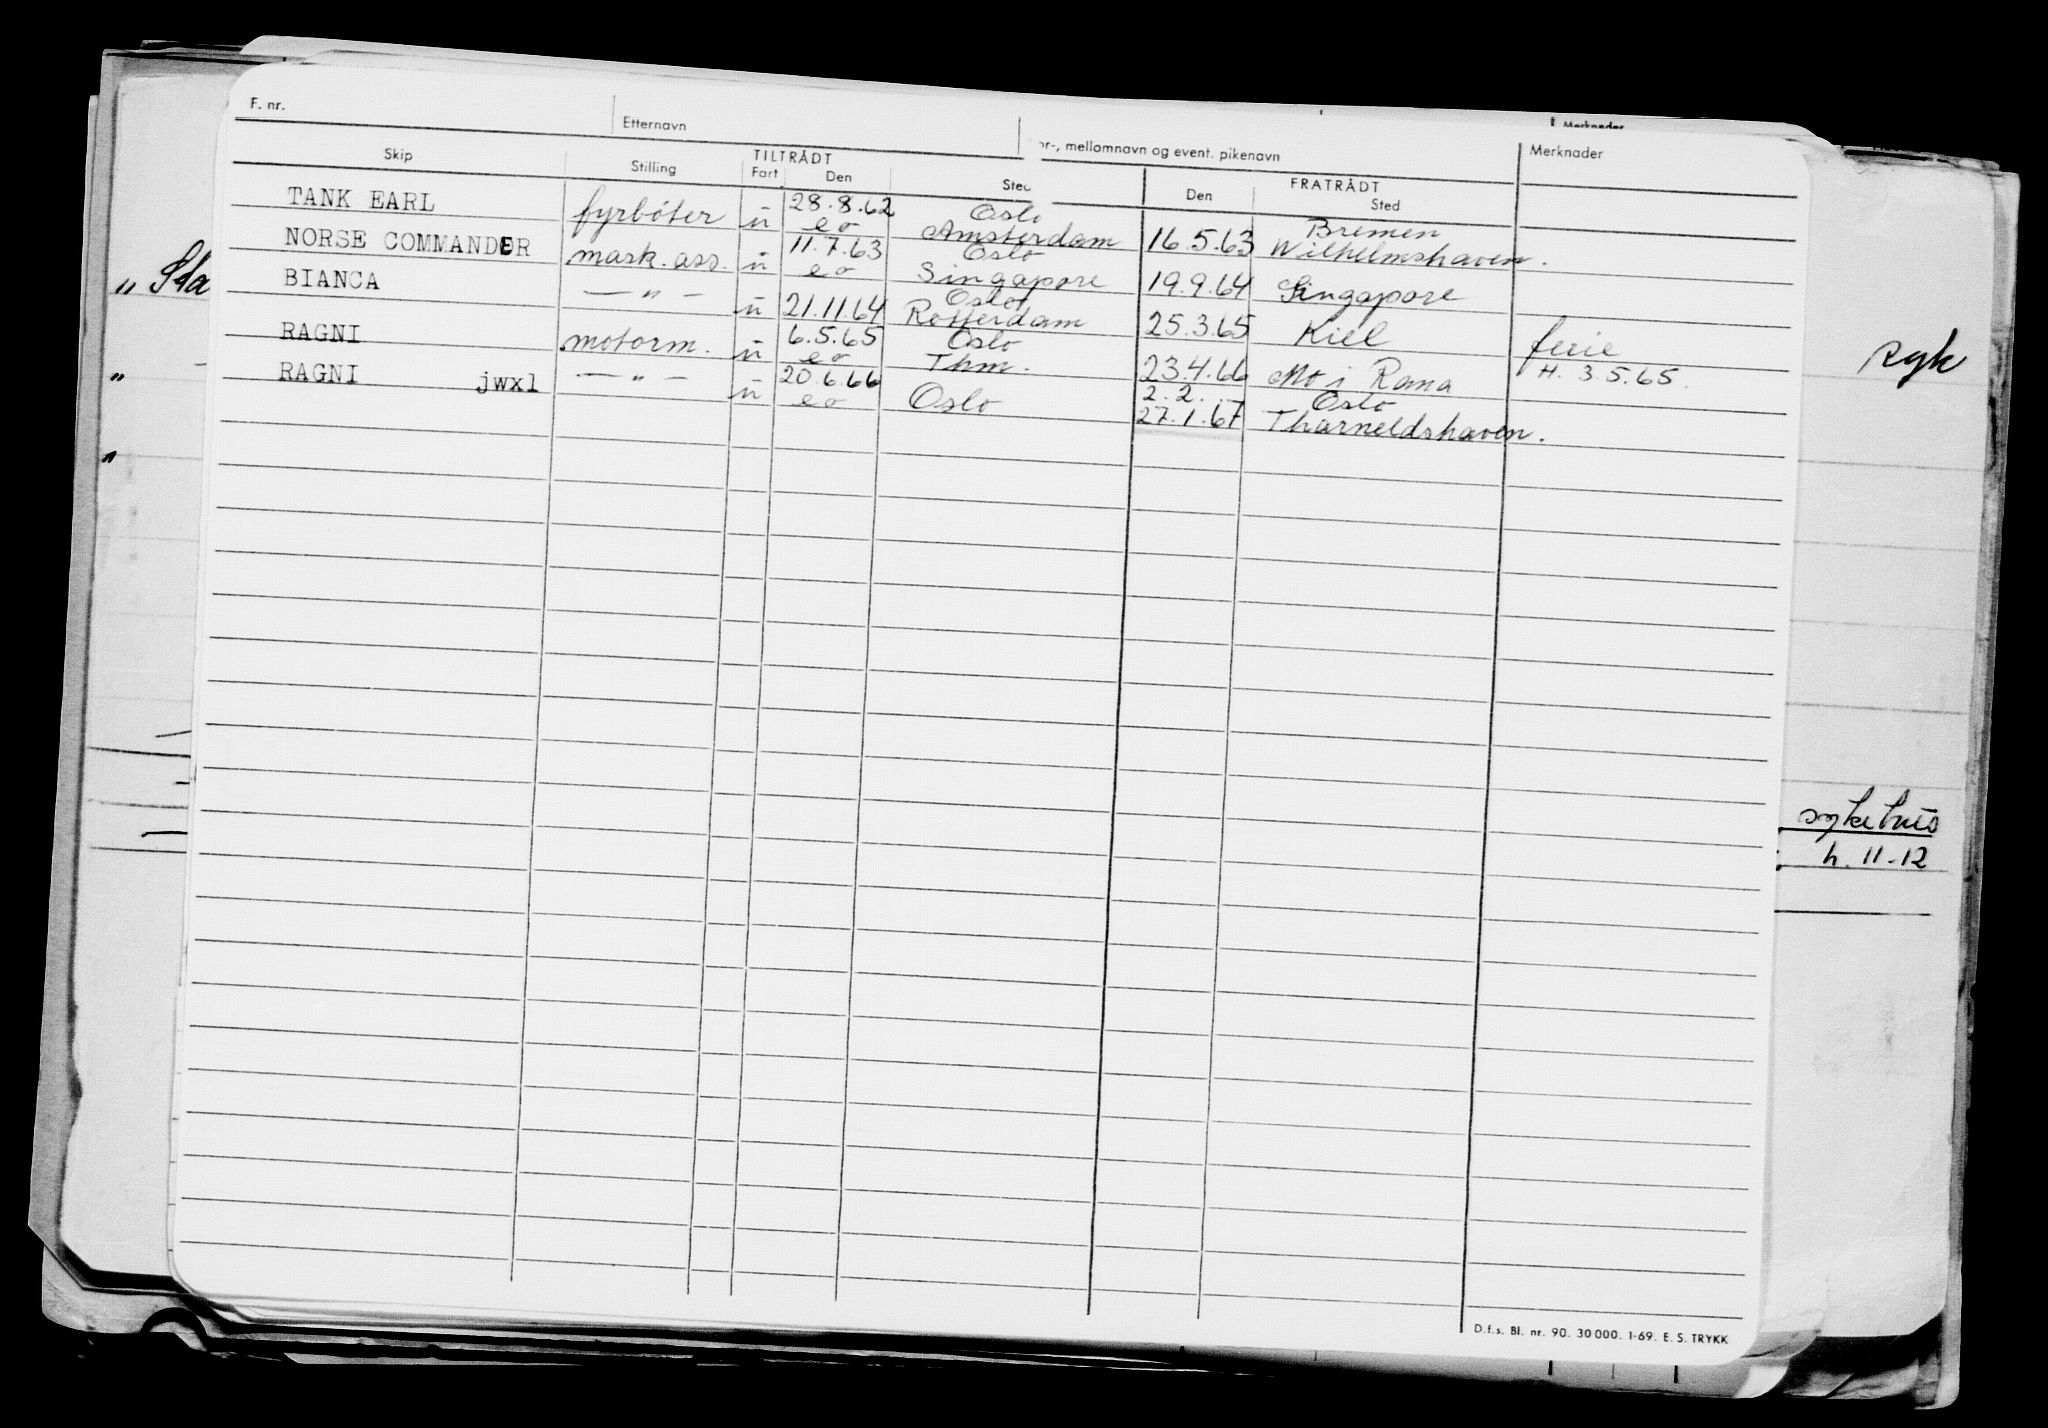 F. nr.
Etternavn
or-, mellomnavn og event. pikenavn
Merknader
Merknader
TILTRÅDT
FRATRÅDT
Skip Stilling Fart Den Sted Den Sted
TANK EARL fyrbøter ū 28.8.62 Oslo 16.5.63 Bremen
eo Amsterdam Wilhelmshaven.
NORSE COMMANDER mask. ass. ū 11.7.63 Oslo 19.9.64 Singapore
eo Singapore
BIANCA — " — ū 21.11.64 Oslo 25.3.65 Kiel ferie
Rotterdam H. 3.5.65.
RAGNI motorm. ū 6.5.65 Oslo 23.4.66 Mo i Rana
eo Thm.
RAGNI jwxl — " — ū 20.6.66 Oslo 2.2. Oslo
eo 27.1.67 Tharneldshaven.
" Sta
"
"
Rgk
sykehus
h. 11-12
D.f.s. Bl. nr. 90. 30 000. 1-69. E. S. TRYKK